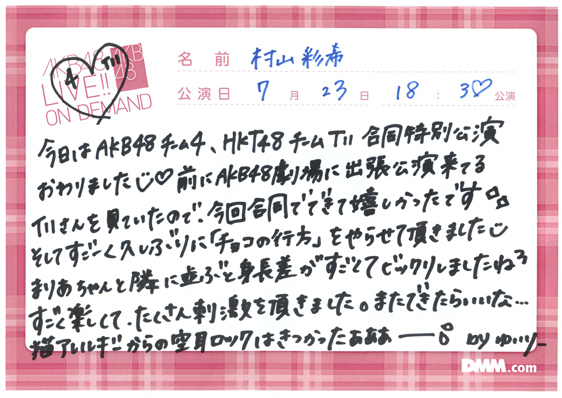 AKB48
LIVE!!
ON DEMAND
AKB
48
4 TII
名前 村山彩希
公演日 7月23日 18:30公演
今日はAKB48チーム4、HKT48チームTII 合同特別公演
おわりました♡前にAKB48劇場に出張公演来てる
TIIさんを見ていたので、今回合同でできて嬉しかったです
そしてすごーく久しぶりに「チョコの行方」をやらせて頂きました
まりあちゃんと隣に並ぶと身長差がすごくてビックリしましたね
すごく楽しくて、たくさん刺激を頂きました。またできたらいいな…
猫アレルギーからの空耳ロックはきつかったぁぁぁーー by ゆいりー
DMM.com